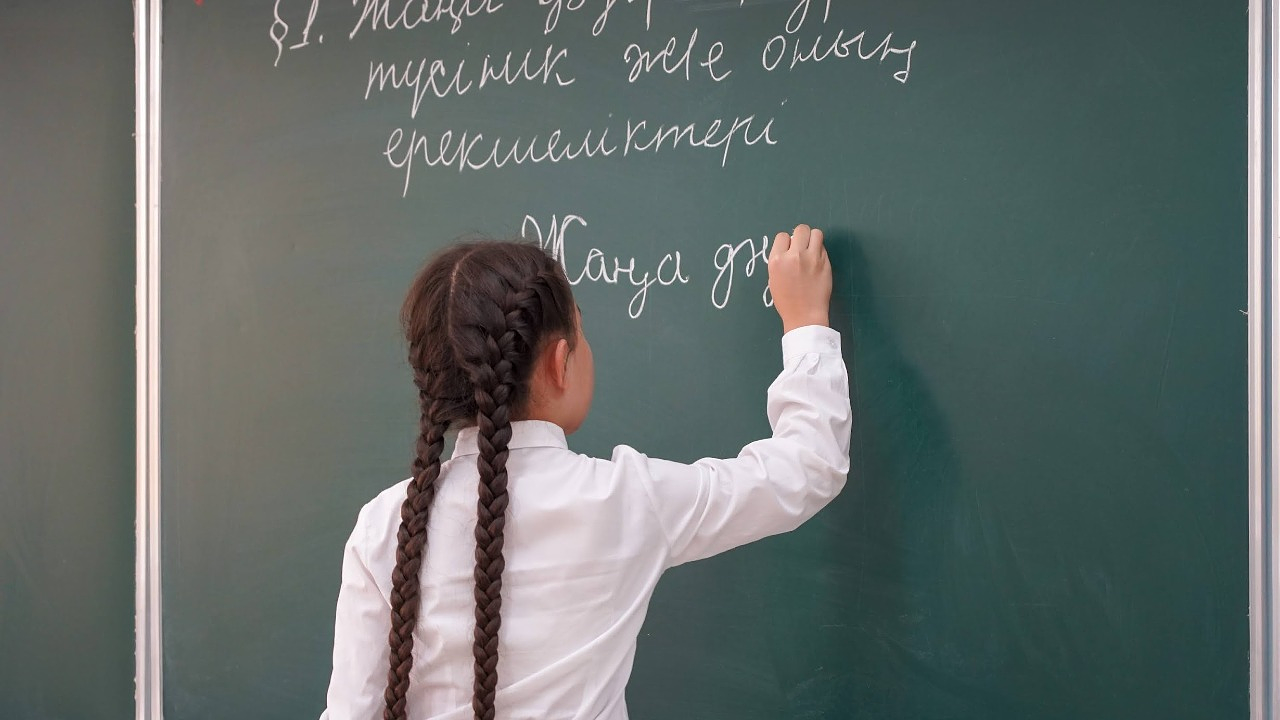 §1. Жаңа
түсінік және оның
ерекшеліктері
Жаңа дү